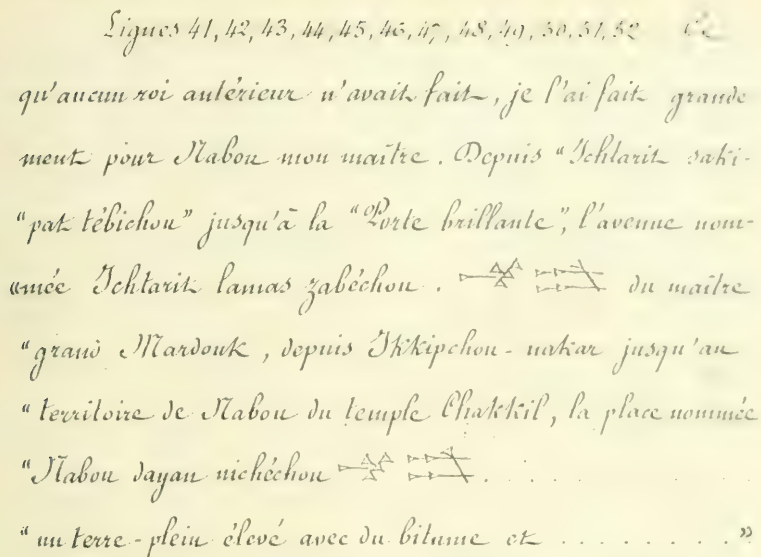 Lignes 41, 42, 43, 44, 45, 46, 47, 48, 49, 50, 51, 52 Ce
qu'aucun roi antérieur n'avait fait, je l'ai fait grande
ment pour Nabou mon maître. Depuis "Ichtarit saki-
"pat tébichou" jusqu'à la "Porte brillante", l'avenue nom-
"mée Ichtarit lamas zabéchou. du maître
"grand Mardouk, depuis Ikkipchou-nakar jusqu'au
"territoire de Nabou du temple Chakkil, la place nommée
"Nabou dayan nichéchou . . . . .
"un terre-plein élevé avec du bitume et . . . . . . . . . "